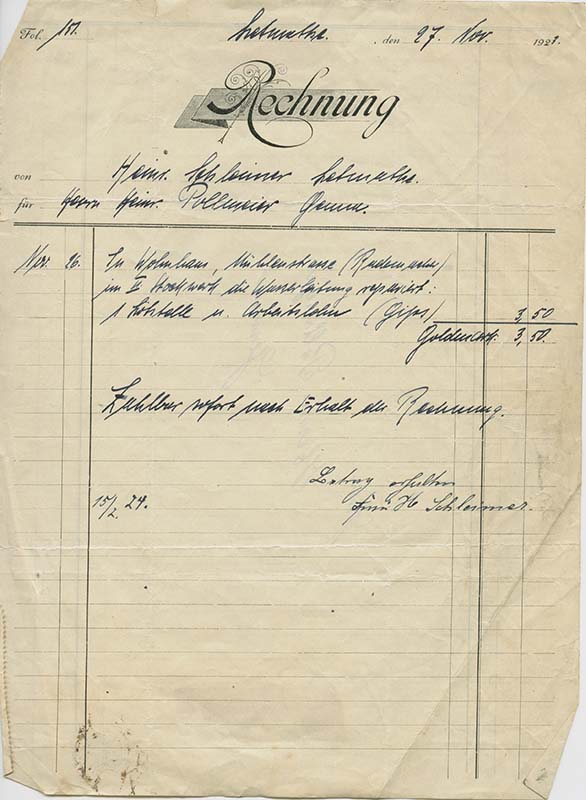 Fol. 151. Letmathe. , den 27. Nov. 1923.
Rechnung
von Heinr. Schleimer Letmathe.
für Herrn Heinr. Pollmeier Genna.
Nov. 26. In Wohnhaus, Mühlenstrasse (Rademacher)
im II Stockwerk die Wasserleitung repariert:
1 Lötstelle u. Arbeitslohn (Gips) 3,50
Goldmark. 3,50.
Zahlbar sofort nach Erhalt der Rechnung.
Betrag erhalten
15/2. 24. Frau H Schleimer.